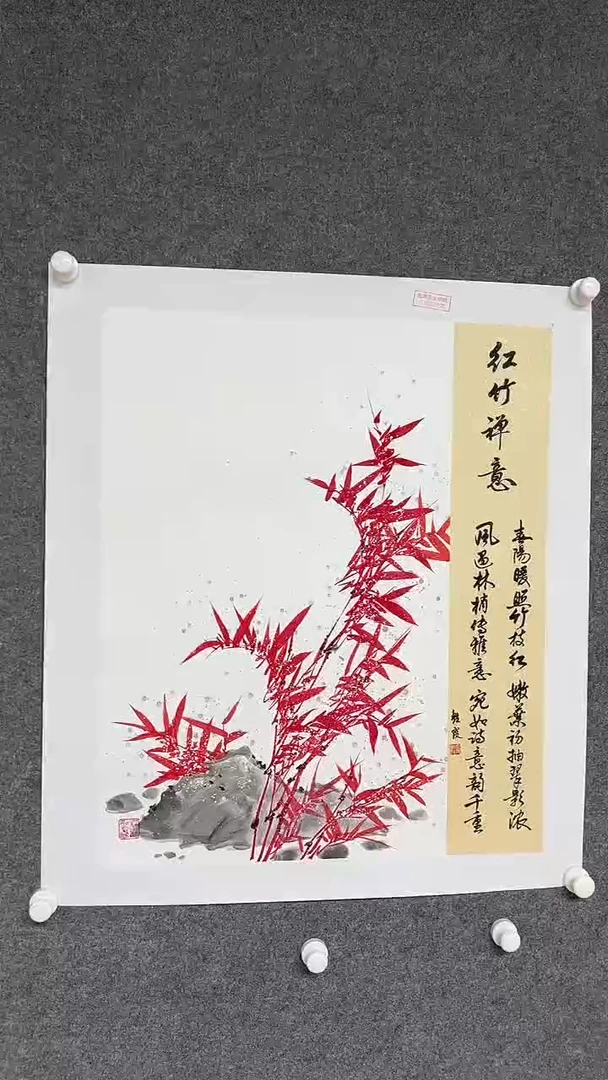 红竹禅意
春陽暖照竹枝红 嫩葉初抽翠影浓
風过林梢传雅意 宛如诗意韵千重